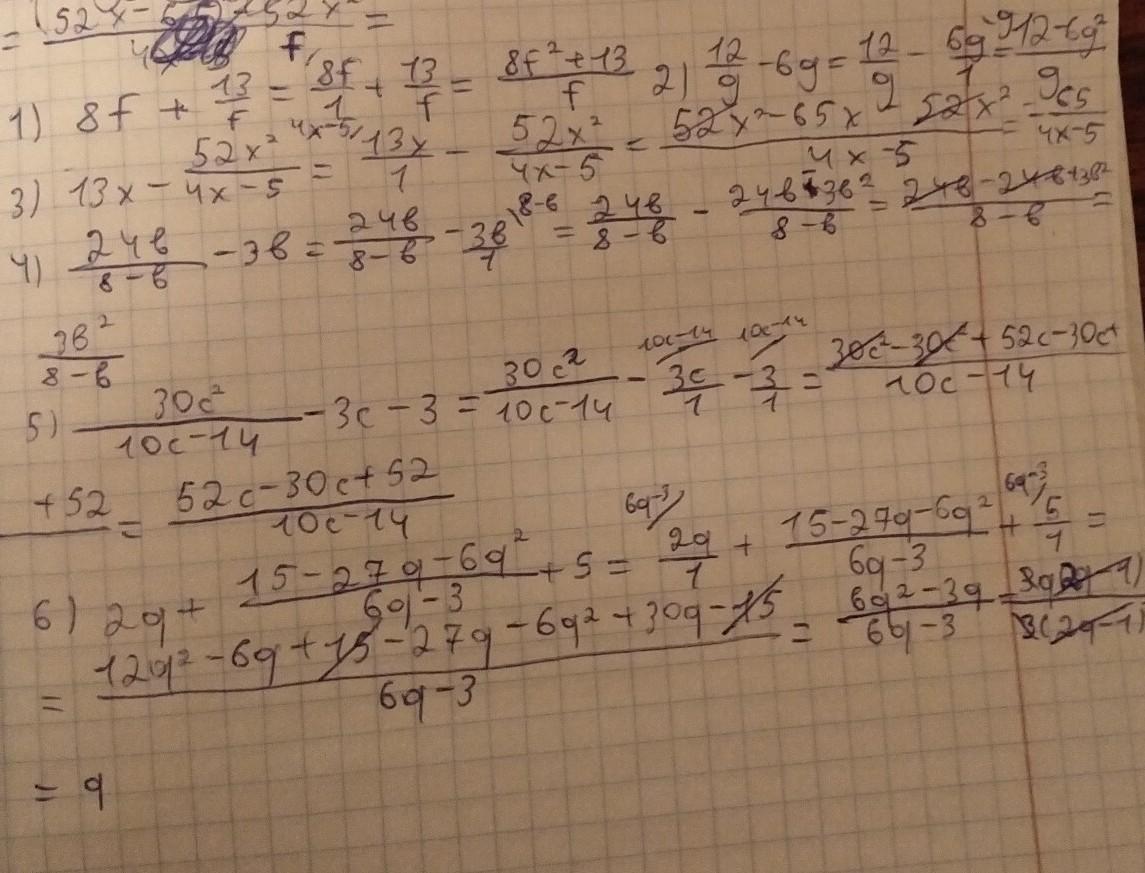 = (52x - 52x² =
f
1) 8f + 13/f = 8f/1 + 13/f = 8f² + 13/f 2) 12/g - 6g = 12/g - 6g/1 \g = 12-6g²/g
3) 13x - 52x²/4x-5 = 4x-5/ 13x/1 - 52x²/4x-5 = 52x² - 65x 52x²/4x-5 = -65/4x-5
4) 24b/8-b - 3b = 24b/8-b - 3b/1 \8-b = 24b/8-b - 24b 3b²/8-b = 24b - 24b + 3b²/8-b =
3b²/8-b
5) 30c²/10c-14 - 3c - 3 = 30c²/10c-14 - 10c-14/ 3c/1 - 10c-14/ 3/1 = 30c² - 30c² + 52c - 30c+/10c-14
+52 = 52c - 30c + 52/10c-14
6) 2q + 15-27q-6q²/6q-3 + 5 = 6q-3/ 2q/1 + 15-27q-6q²/6q-3 + 6q-3/ 5/1 =
= 12q² - 6q + 15 - 27q - 6q² + 30q - 15/6q-3 = 6q² - 3q/6q-3 = 3q(2q-1)/3(2q-1)
= q